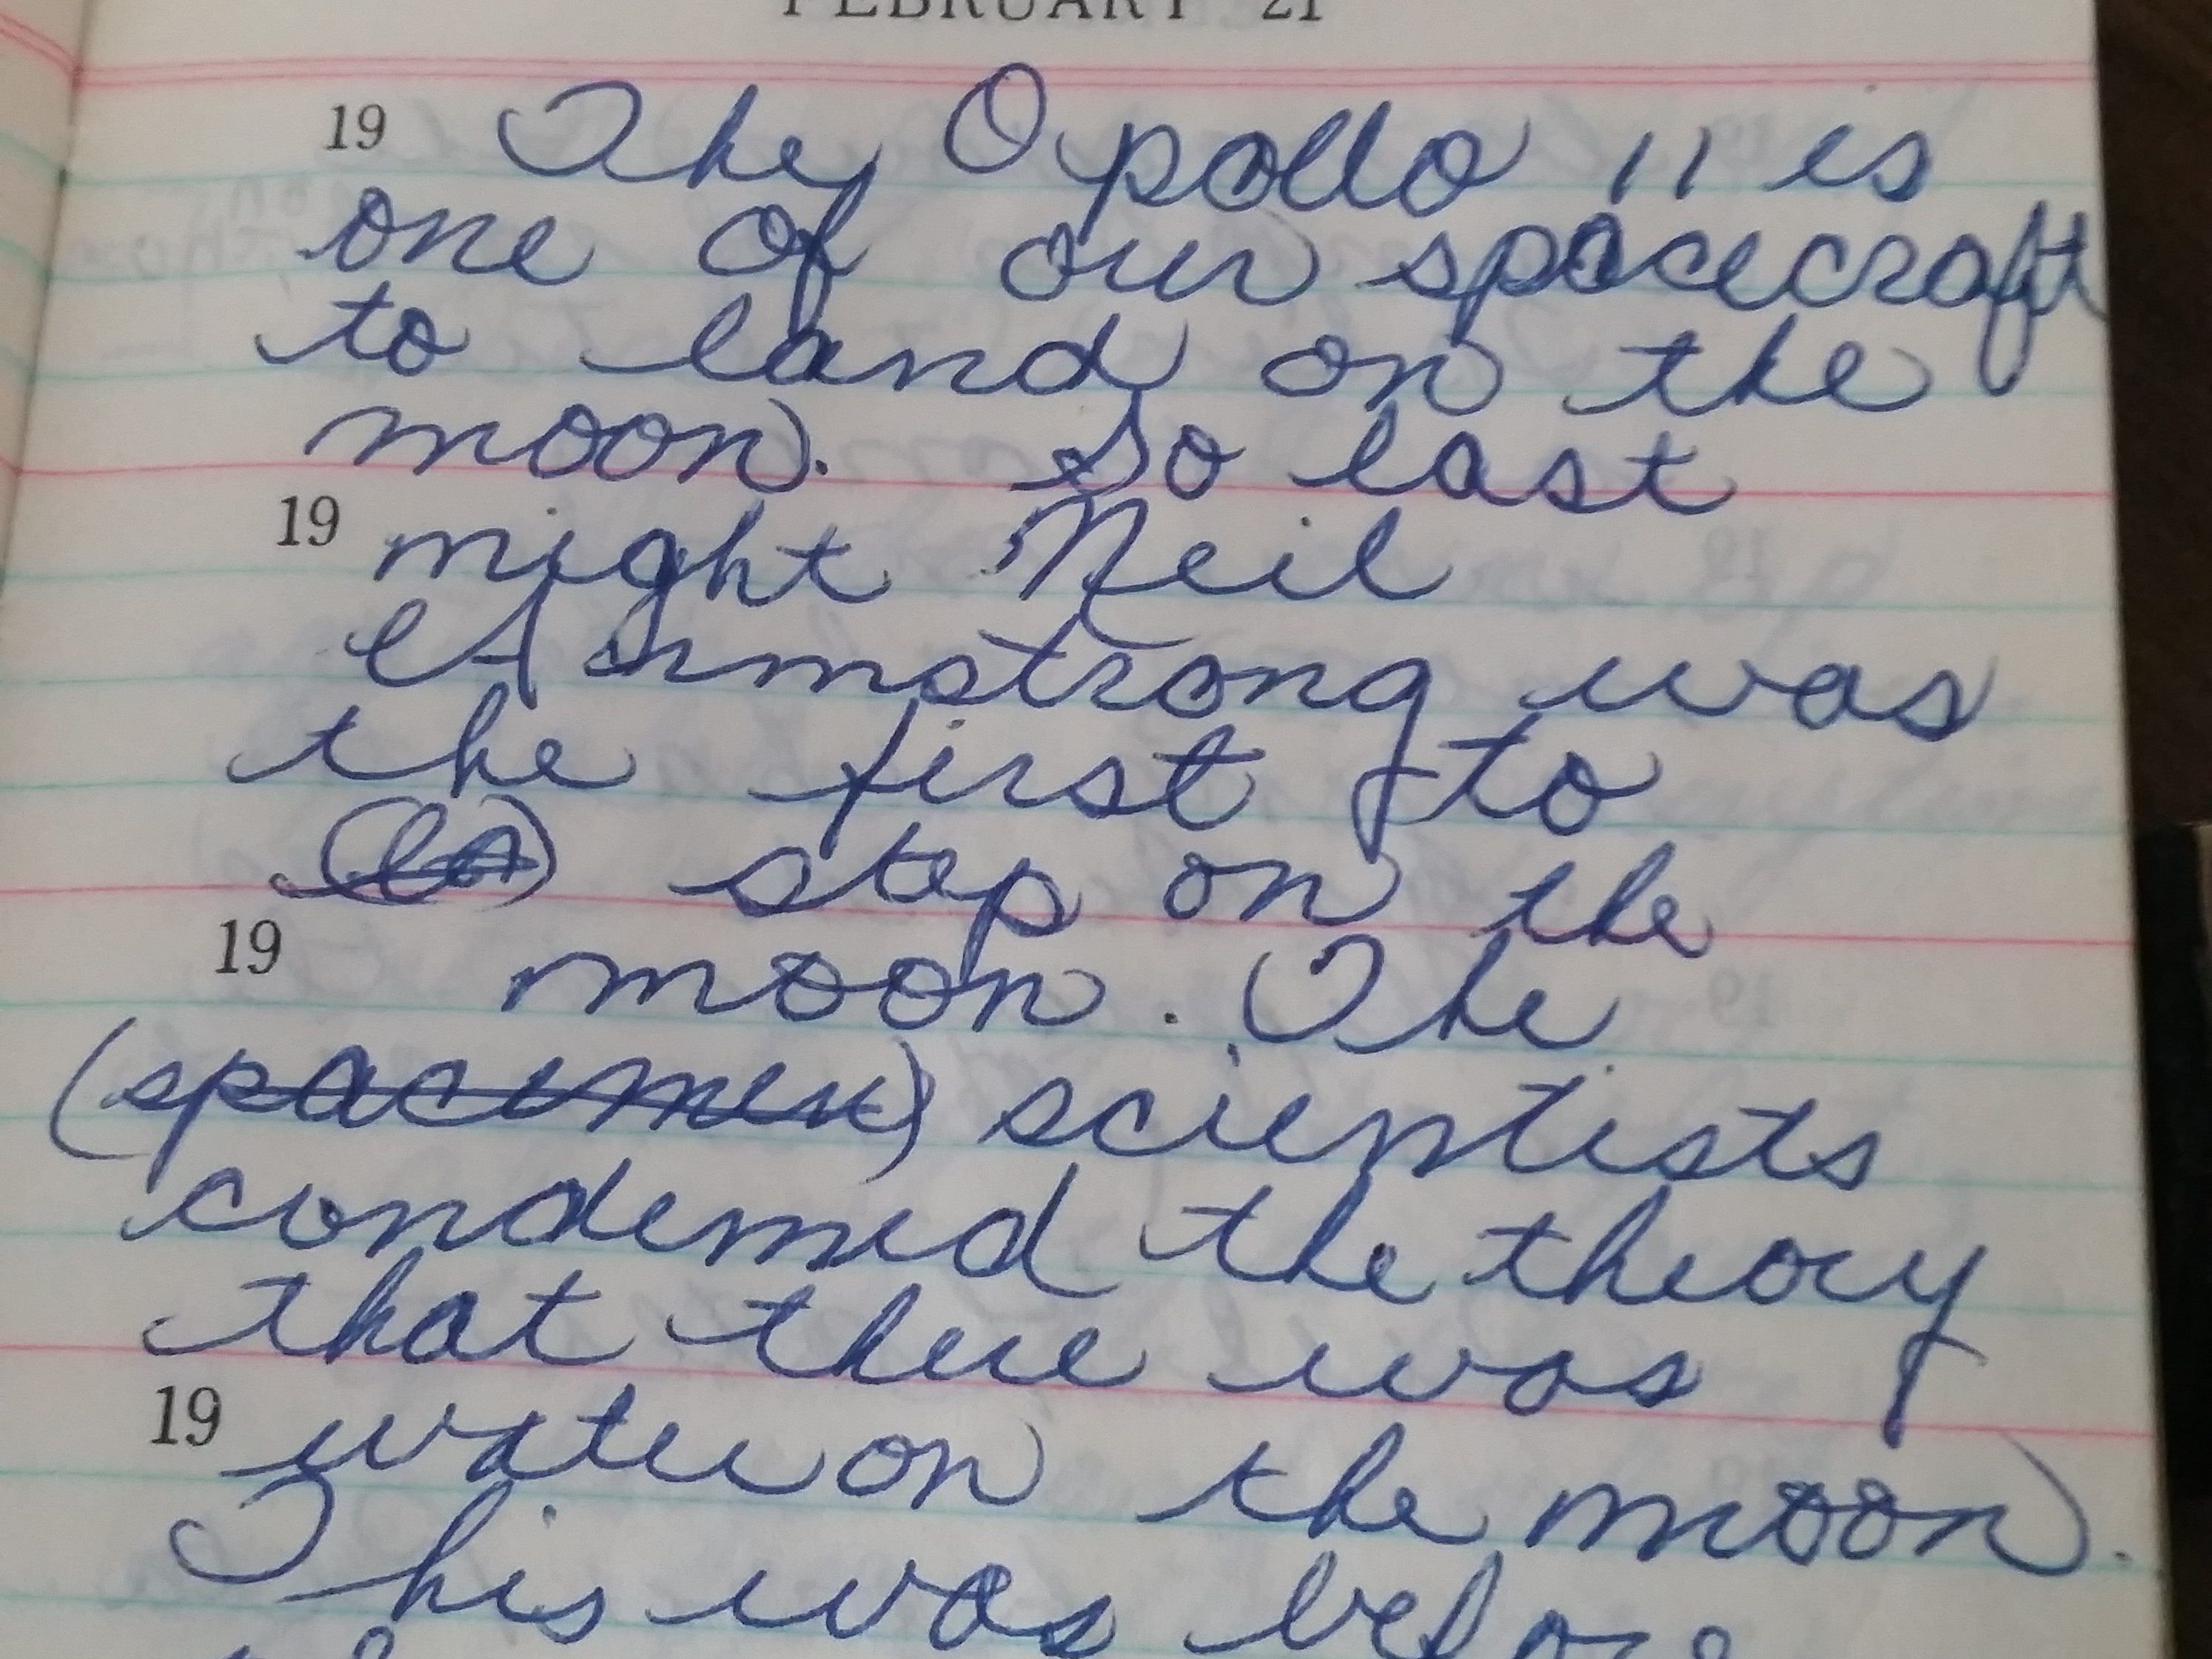 FEBRUARY 21
19 The Apollo 11 is
one of our spacecraft
to land on the
moon. So last
19 night Neil
Armstrong was
the first to
step on the
19 moon. The
(spacemen) scientists
condemed the theory
that there was
19 water on the moon.
This was before